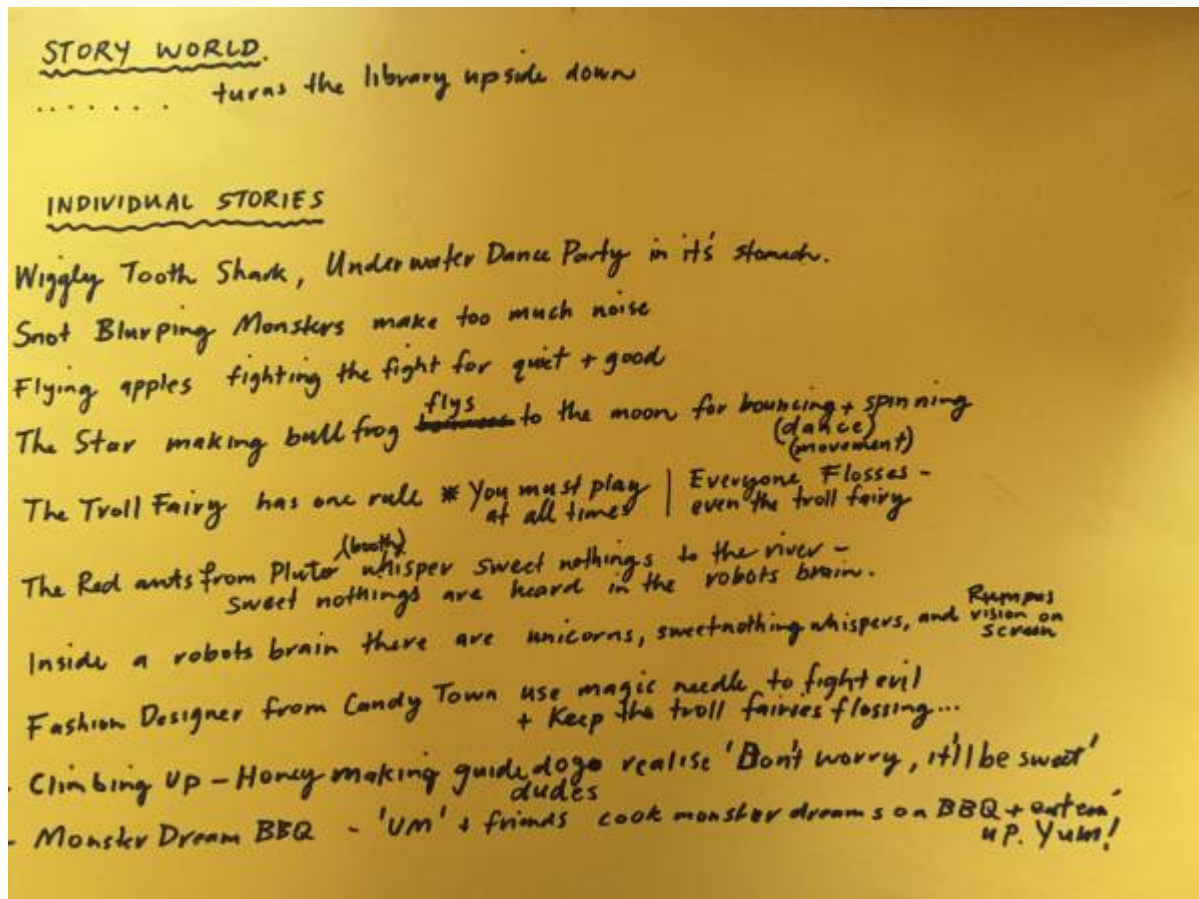 STORY WORLD.
....... turns the library upside down
INDIVIDUAL STORIES
Wiggly Tooth Shark, Underwater Dance Party in it's stomach.
Snot Blurping Monsters make too much noise
Flying apples fighting the fight for quiet + good
flys
The Star making bull frog to the moon for bouncing + spinning
(dance)
(movement)
The Troll Fairy has one rule * You must play | Everyone Flosses -
at all times | even the troll fairy
(booth)
The Red ants from Pluto whisper sweet nothings to the river -
sweet nothings are heard in the robots brain.
Inside a robots brain there are unicorns, sweetnothing whispers, and Rumpus
vision on
screen
Fashion Designer from Candy Town use magic needle to fight evil
+ Keep the troll fairies flossing...
- Climbing UP - Honey making guide dogs realise 'Don't worry, it'll be sweet'
dudes
- Monster Dream BBQ - 'UM' + friends cook monster dreams on BBQ + eat em'
up. Yum!